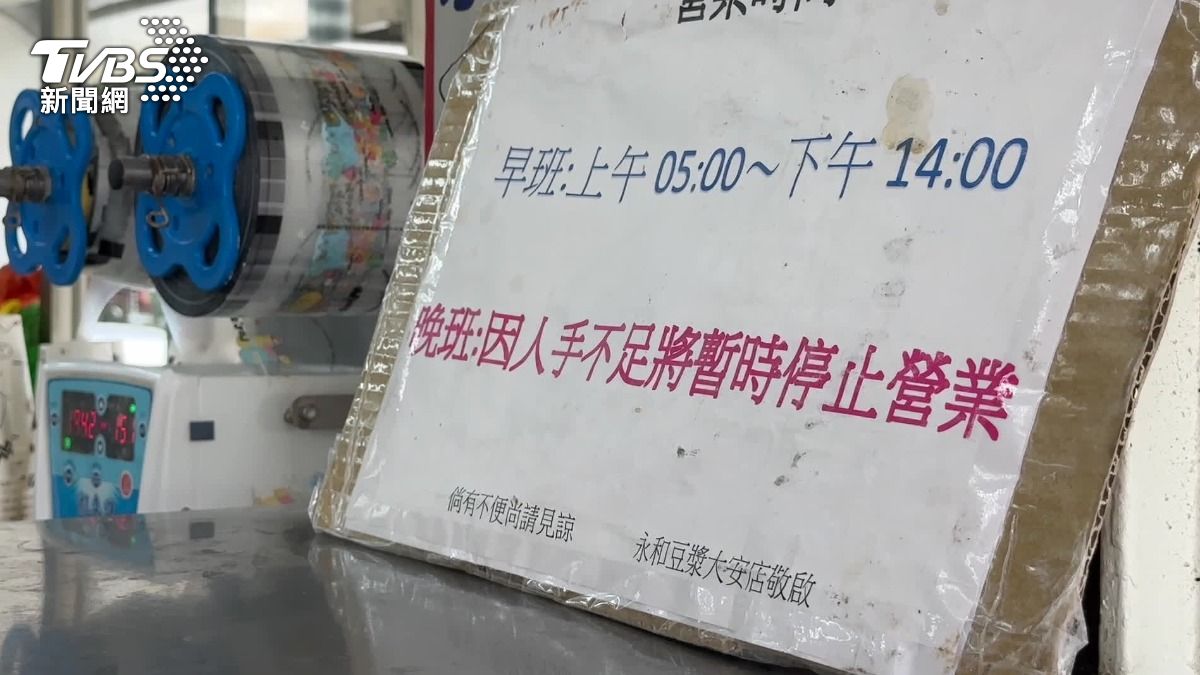 TVBS
新聞網
營業時間
早班:上午 05:00~下午 14:00
晚班:因人手不足將暫時停止營業
倘有不便尚請見諒
永和豆漿大安店敬啟